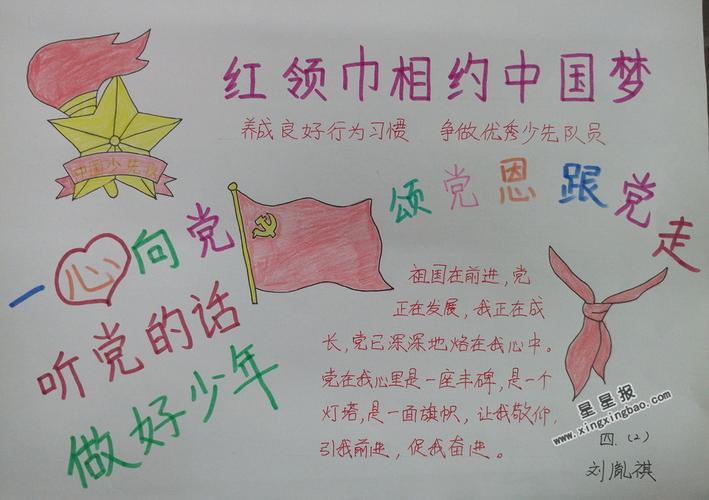 红领巾相约中国梦
养成良好行为习惯 争做优秀少先队员
中国少先队
一心向党
颂党恩跟党走
听党的话
做好少年
祖国在前进，党
正在发展，我正在成
长，党已深深地烙在我心中。
党在我心里是一座丰碑，是一个
灯塔，是一面旗帜，让我敬仰，
引我前进，促我奋进。
星星报
www.xingxingbao.com
四（2）
刘胤祺